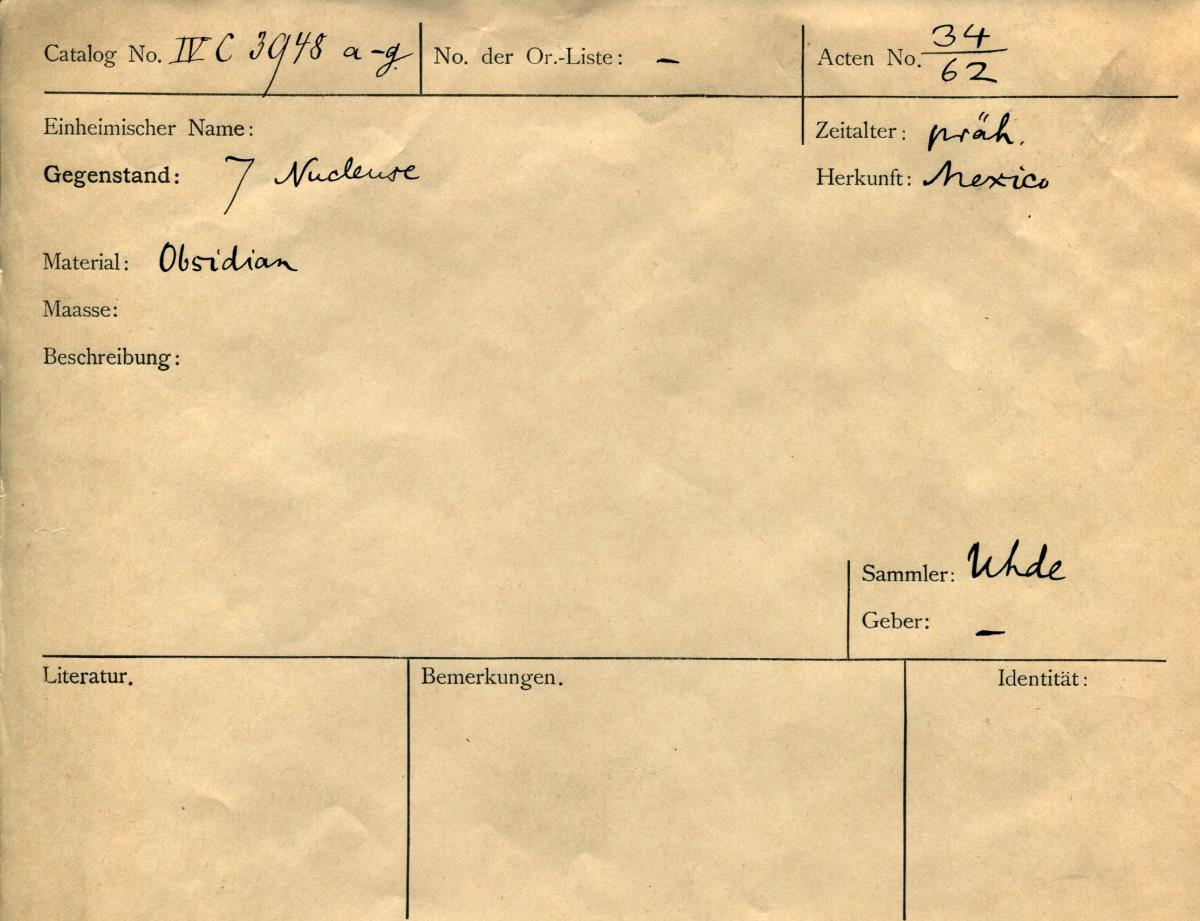 Catalog No. IV C 3948 a-g. No. der Or.-Liste: – Acten No. 34/62
Einheimischer Name: Zeitalter: präh.
Gegenstand: 7 Nucleuse Herkunft: Mexico
Material: Obsidian
Maasse:
Beschreibung:
Sammler: Uhde
Geber: –
Literatur. Bemerkungen. Identität: